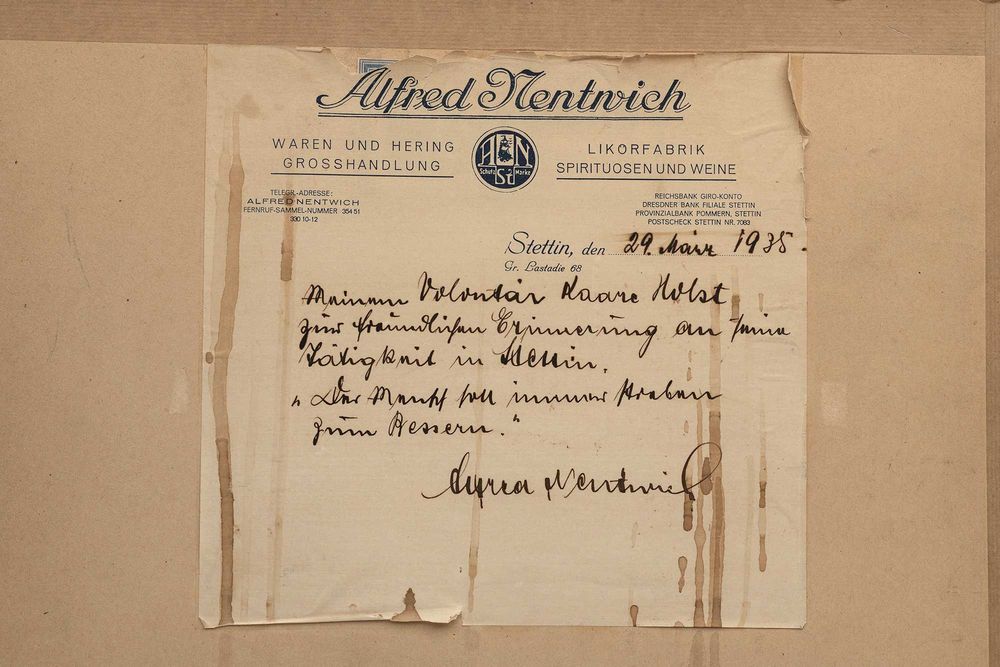 Alfred Nentwich
WAREN UND HERING
GROSSHANDLUNG
A N
Schutz Marke
St
LIKÖRFABRIK
SPIRITUOSEN UND WEINE
TELEGR.-ADRESSE:
ALFRED NENTWICH
FERNRUF-SAMMEL-NUMMER 354 51
330 10-12
REICHSBANK GIRO-KONTO
DRESDNER BANK FILIALE STETTIN
PROVINZIALBANK POMMERN, STETTIN
POSTSCHECK STETTIN NR. 7083
Stettin, den 29. März 1935.
Gr. Lastadie 68
Meinem Volontär Kaare Holst
zur freundlichen Erinnerung an seine
Tätigkeit in Stettin.
„Der Mensch soll immer streben
zum Bessern."
Alfred Nentwich